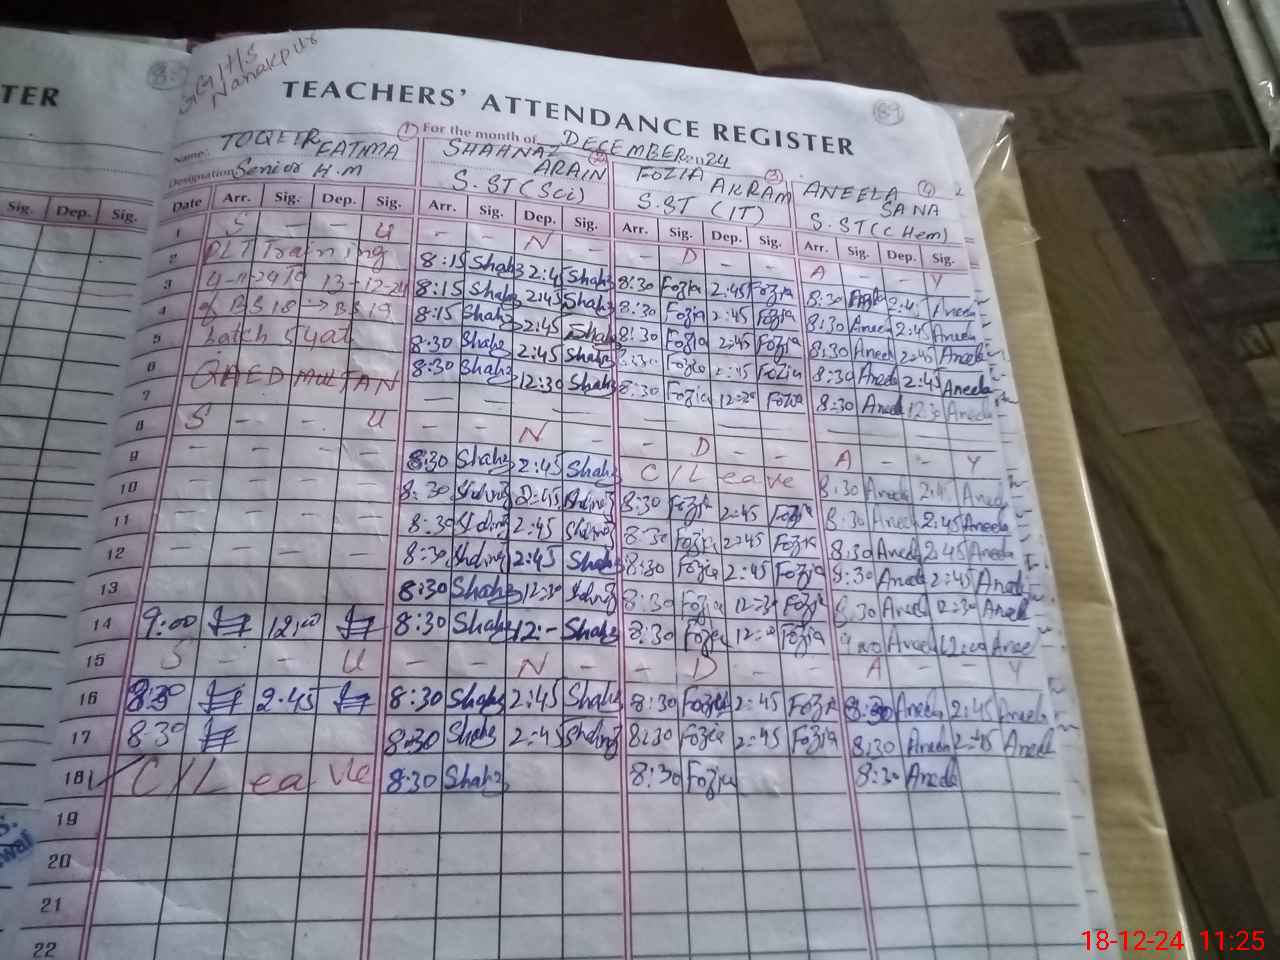 TER
Sig. Dep. Sig.
GGHS
Nanakpur
89
TEACHERS' ATTENDANCE REGISTER
For the month of DECEMBER 2024
Name: TOQEIR FATIMA (1) SHAHNAZ ARAIN (2) FOZIA AKRAM (3) ANEELA SANA (4)
Designation Senior H.M S.ST(Sci) S.ST (IT) S.ST(CHem)
Date Arr. Sig. Dep. Sig. Arr. Sig. Dep. Sig. Arr. Sig. Dep. Sig. Arr. Sig. Dep. Sig.
1 S - - U - - N - - D - - A - - Y
2 PLT Training 8:15 Shahz 2:45 Shahz 8:30 Fozia 2:45 Fozia 8:30 Aneela 2:45 Aneela
3 4-11-24 To 13-12-24 8:15 Shahz 2:45 Shahz 8:30 Fozia 2:45 Fozia 8:30 Aneela 2:45 Aneela
4 of BS18 → BS19 8:15 Shahz 2:45 Shahz 8:30 Fozia 2:45 Fozia 8:30 Aneela 2:45 Aneela
5 batch 5 at 8:30 Shahz 2:45 Shahz 8:30 Fozia 2:45 Fozia 8:30 Aneela 2:45 Aneela
6 QAED MULTAN 8:30 Shahz 12:30 Shahz 8:30 Fozia 12:30 Fozia 8:30 Aneela 12:30 Aneela
7 - - - - - - - - - - - -
8 S - - U - - N - - D - - A - - Y
9 - - - - 8:30 Shahz 2:45 Shahz C/Leave 8:30 Aneela 2:45 Aneela
10 - - - - 8:30 2:45 8:30 Fozia 2:45 Fozia 8:30 Aneela 2:45 Aneela
11 - - - - 8:30 2:45 8:30 Fozia 2:45 Fozia 8:30 Aneela 2:45 Aneela
12 - - - - 8:30 2:45 Shahz 8:30 Fozia 2:45 Fozia 8:30 Aneela 2:45 Aneela
13 8:30 Shahz 12:30 8:30 Fozia 12:30 Fozia 8:30 Aneela 12:30 Aneela
14 9:00 12:00 8:30 Shahz 12:- Shahz 8:30 Fozia 12:00 Fozia 9:00 Aneela 12:00 Aneela
15 S - - U - - N - - D - - A - - Y
16 8:30 2:45 8:30 Shahz 2:45 Shahz 8:30 Fozia 2:45 Fozia 8:30 Aneela 2:45 Aneela
17 8:30 8:30 Shahz 2:45 8:30 Fozia 2:45 Fozia 8:30 Aneela 2:45 Aneela
18 C/Leave 8:30 Shahz 8:30 Fozia 8:30 Aneela
19
20
21
22
18-12-24 11:25